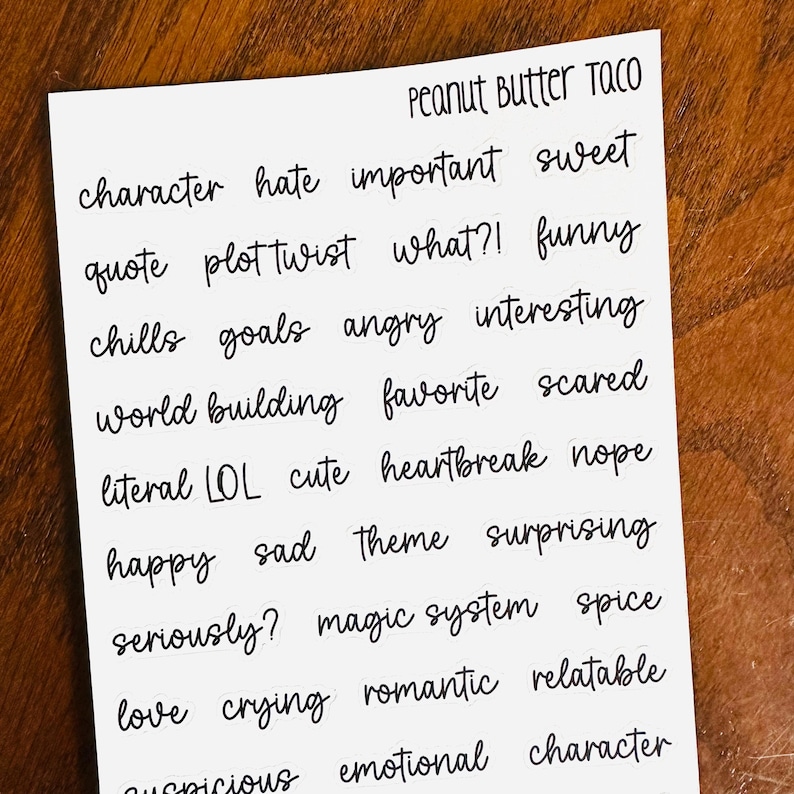 Peanut Butter Taco
character hate important sweet
quote plot twist what?! funny
chills goals angry interesting
world building favorite scared
literal LOL cute heartbreak nope
happy sad theme surprising
seriously? magic system spice
love crying romantic relatable
suspicious emotional character